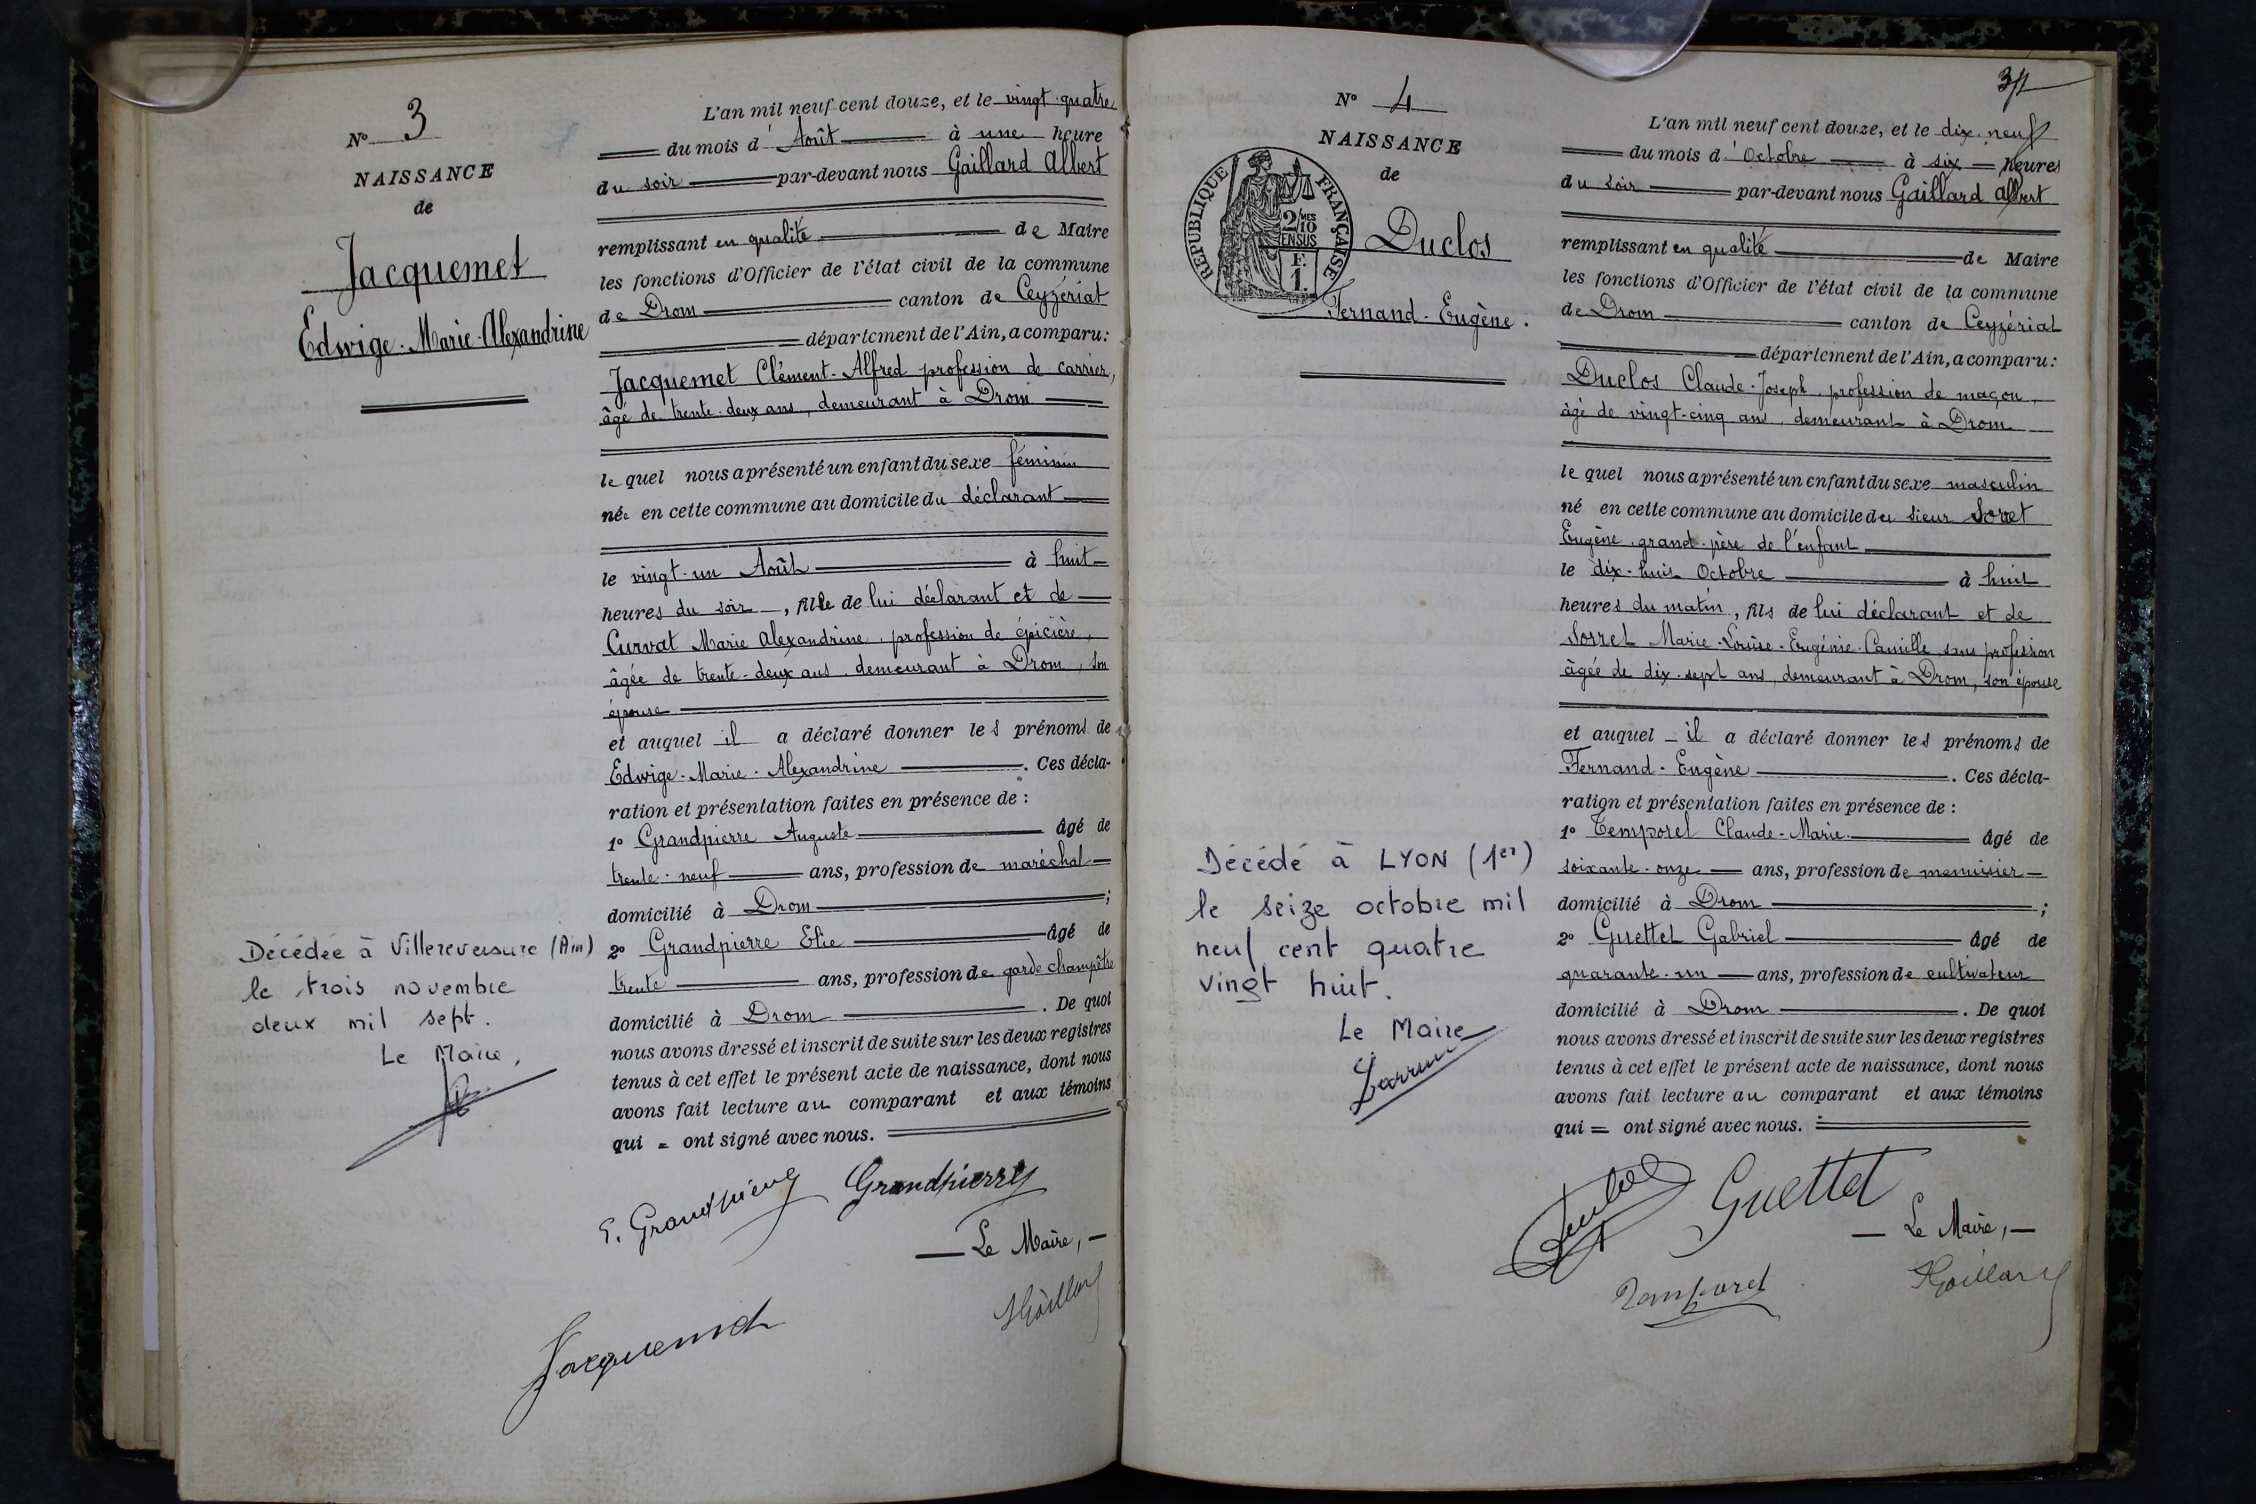 N° 3
NAISSANCE
de
Jacquemet
Edwige-Marie-Alexandrine
Décédée à Villereversure (Ain)
le trois novembre
deux mil sept.
Le Maire,
L'an mil neuf cent douze, et le vingt-quatre
du mois d'Août à une heure
du soir par-devant nous Gaillard Albert
remplissant en qualité de Maire
les fonctions d'Officier de l'état civil de la commune
de Drom canton de Ceyzériat
département de l'Ain, a comparu:
Jacquemet Clément-Alfred profession de carrier,
âgé de trente-deux ans, demeurant à Drom
le quel nous a présenté un enfant du sexe féminin
née en cette commune au domicile du déclarant
le vingt-un Août à huit
heures du soir, fille de lui déclarant et de
Curvat Marie Alexandrine, profession de épicière,
âgée de trente-deux ans, demeurant à Drom, son
épouse
et auquel il a déclaré donner les prénoms de
Edwige-Marie-Alexandrine. Ces décla-
ration et présentation faites en présence de:
1° Grandpierre Auguste âgé de
trente-neuf ans, profession de maréchal
domicilié à Drom;
2° Grandpierre Elie âgé de
trente ans, profession de garde champêtre
domicilié à Drom. De quoi
nous avons dressé et inscrit de suite sur les deux registres
tenus à cet effet le présent acte de naissance, dont nous
avons fait lecture au comparant et aux témoins
qui = ont signé avec nous.
E. Grandpierre Grandpierre
Le Maire,
Jacquemet AGaillard
N° 4
NAISSANCE
de
REPUBLIQUE FRANÇAISE
2/10 MES
EN SUS
F.
1.
Duclos
Fernand-Eugène.
Décédé à LYON (1er)
le seize octobre mil
neuf cent quatre
vingt huit.
Le Maire
37
L'an mil neuf cent douze, et le dix-neuf
du mois d'Octobre à six heures
du soir par-devant nous Gaillard Albert
remplissant en qualité de Maire
les fonctions d'Officier de l'état civil de la commune
de Drom canton de Ceyzériat
département de l'Ain, a comparu:
Duclos Claude-Joseph, profession de maçon,
âgé de vingt-cinq ans, demeurant à Drom
le quel nous a présenté un enfant du sexe masculin
né en cette commune au domicile du sieur Sorret
Eugène, grand-père de l'enfant
le dix-huit Octobre à huit
heures du matin, fils de lui déclarant et de
Sorret Marie-Louise-Eugénie-Camille, sans profession
âgée de dix-sept ans, demeurant à Drom, son épouse
et auquel il a déclaré donner les prénoms de
Fernand-Eugène. Ces décla-
ration et présentation faites en présence de:
1° Temporel Claude-Marie âgé de
soixante-onze ans, profession de menuisier
domicilié à Drom;
2° Guettet Gabriel âgé de
quarante-un ans, profession de cultivateur
domicilié à Drom. De quoi
nous avons dressé et inscrit de suite sur les deux registres
tenus à cet effet le présent acte de naissance, dont nous
avons fait lecture au comparant et aux témoins
qui = ont signé avec nous.
Guettet
Le Maire,
Temporel AGaillard